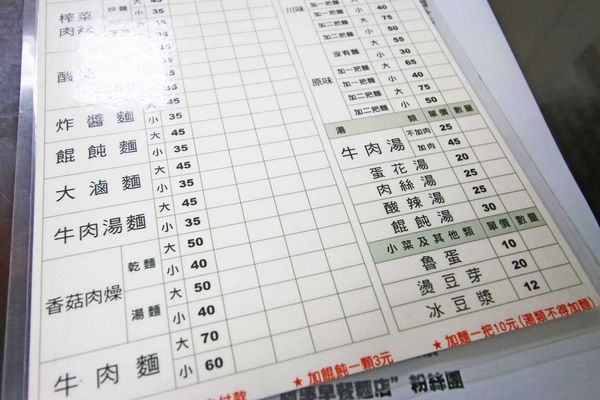 榨菜
肉絲
小 35
酸
大 45
小 35
炸醬麵 大 45
小 35
餛飩麵 大 45
小 35
大滷麵 大 45
小 35
牛肉湯麵 大 45
小 35
香菇肉燥 乾麵 大 50
小 40
湯麵 大 50
小 40
牛肉麵 大 70
小 60
川味 加一把麵 小 40
加二把麵 大 75
加二把麵 小 50
原味 沒有麵 大 55
小 30
加一把麵 大 65
加一把麵 小 40
加二把麵 大 75
加二把麵 小 50
湯類 單價 數量
牛肉湯 不加肉 25
加肉 45
蛋花湯 20
肉絲湯 25
酸辣湯 25
餛飩湯 30
小菜及其他類 單價 數量
魯蛋 10
燙豆芽 20
冰豆漿 12
付款
★加餛飩一顆3元
★加麵一把10元(湯類不得加麵)
早餐麵店”粉絲團